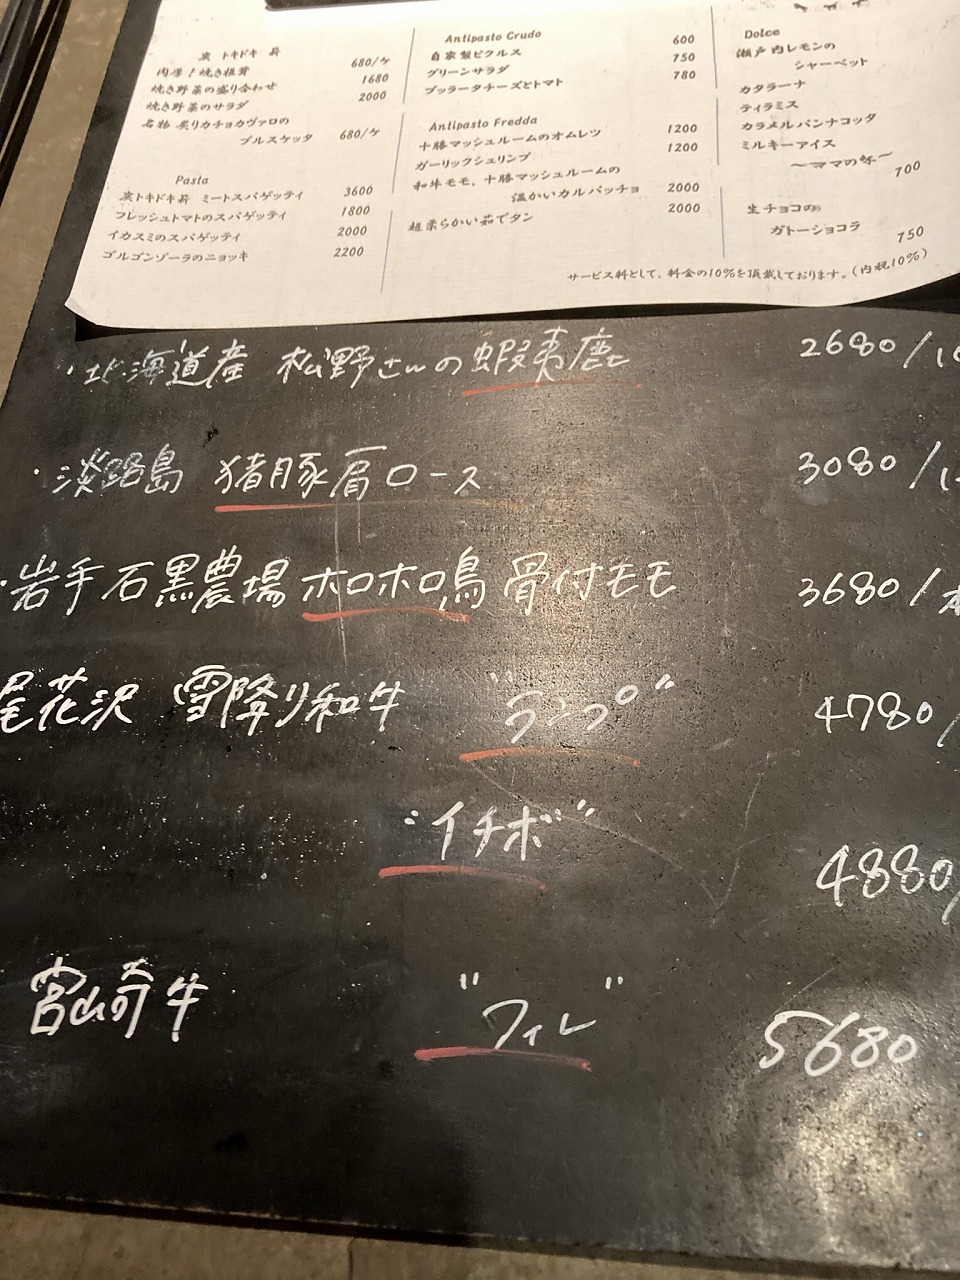 炭 トキドキ 昇
肉厚!焼き椎茸 680/ケ
焼き野菜の盛り合わせ 1680
焼き野菜のサラダ 2000
名物 炙りカチョカヴァロの
ブルスケッタ 680/ケ
Pasta
炭トキドキ昇 ミートスパゲッティ 3600
フレッシュトマトのスパゲッティ 1800
イカスミのスパゲッティ 2000
ゴルゴンゾーラのニョッキ 2200
Antipasto Crudo
自家製ピクルス 600
グリーンサラダ 750
ブッラータチーズとトマト 780
Antipasto Fredda
十勝マッシュルームのオムレツ 1200
ガーリックシュリンプ 1200
和牛モモ、十勝マッシュルームの
温かいカルパッチョ 2000
超柔らかい茹でタン 2000
Dolce
瀬戸内レモンの
シャーベット
カタラーナ
ティラミス
カラメルパンナコッタ
ミルキーアイス
〜ママの味〜
700
生チョコの
ガトーショコラ
750
サービス料として、料金の10%を頂戴しております。(内税10%)
・北海道産 松野さんの蝦夷鹿 2680/
・淡路島 猪豚肩ロース 3080/
・岩手石黒農場 ホロホロ鳥 骨付モモ 3680/本
尾花沢 雪降り和牛 "ランプ" 4780/
"イチボ" 4880/
宮崎牛 "フィレ" 5680